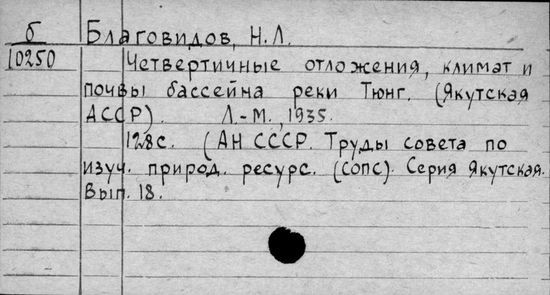 б Благовидов, Н.Л.
10250 Четвертичные отложения, климат и
почвы бассейна реки Тюнг. (Якутская
АССР). Л.-М., 1935.
128с. (АН СССР. Труды совета по
изуч. природ. ресурс. (СОПС). Серия Якутская.
Вып. 18.